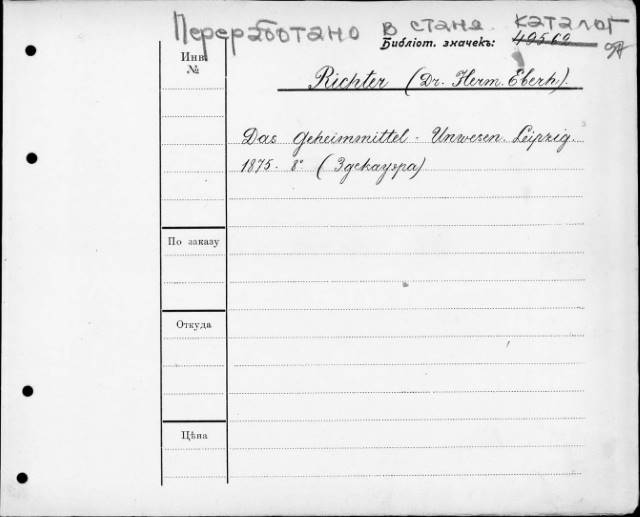 Переработано в станд. каталог
Библіот. значекъ: 40562
Инв.
№
Richter (Dr. Herm. Eberh).
Das Geheimmittel-Unwesen. Leipzig.
1875. 8° (Здекауэра)
По заказу
Откуда
Цѣна